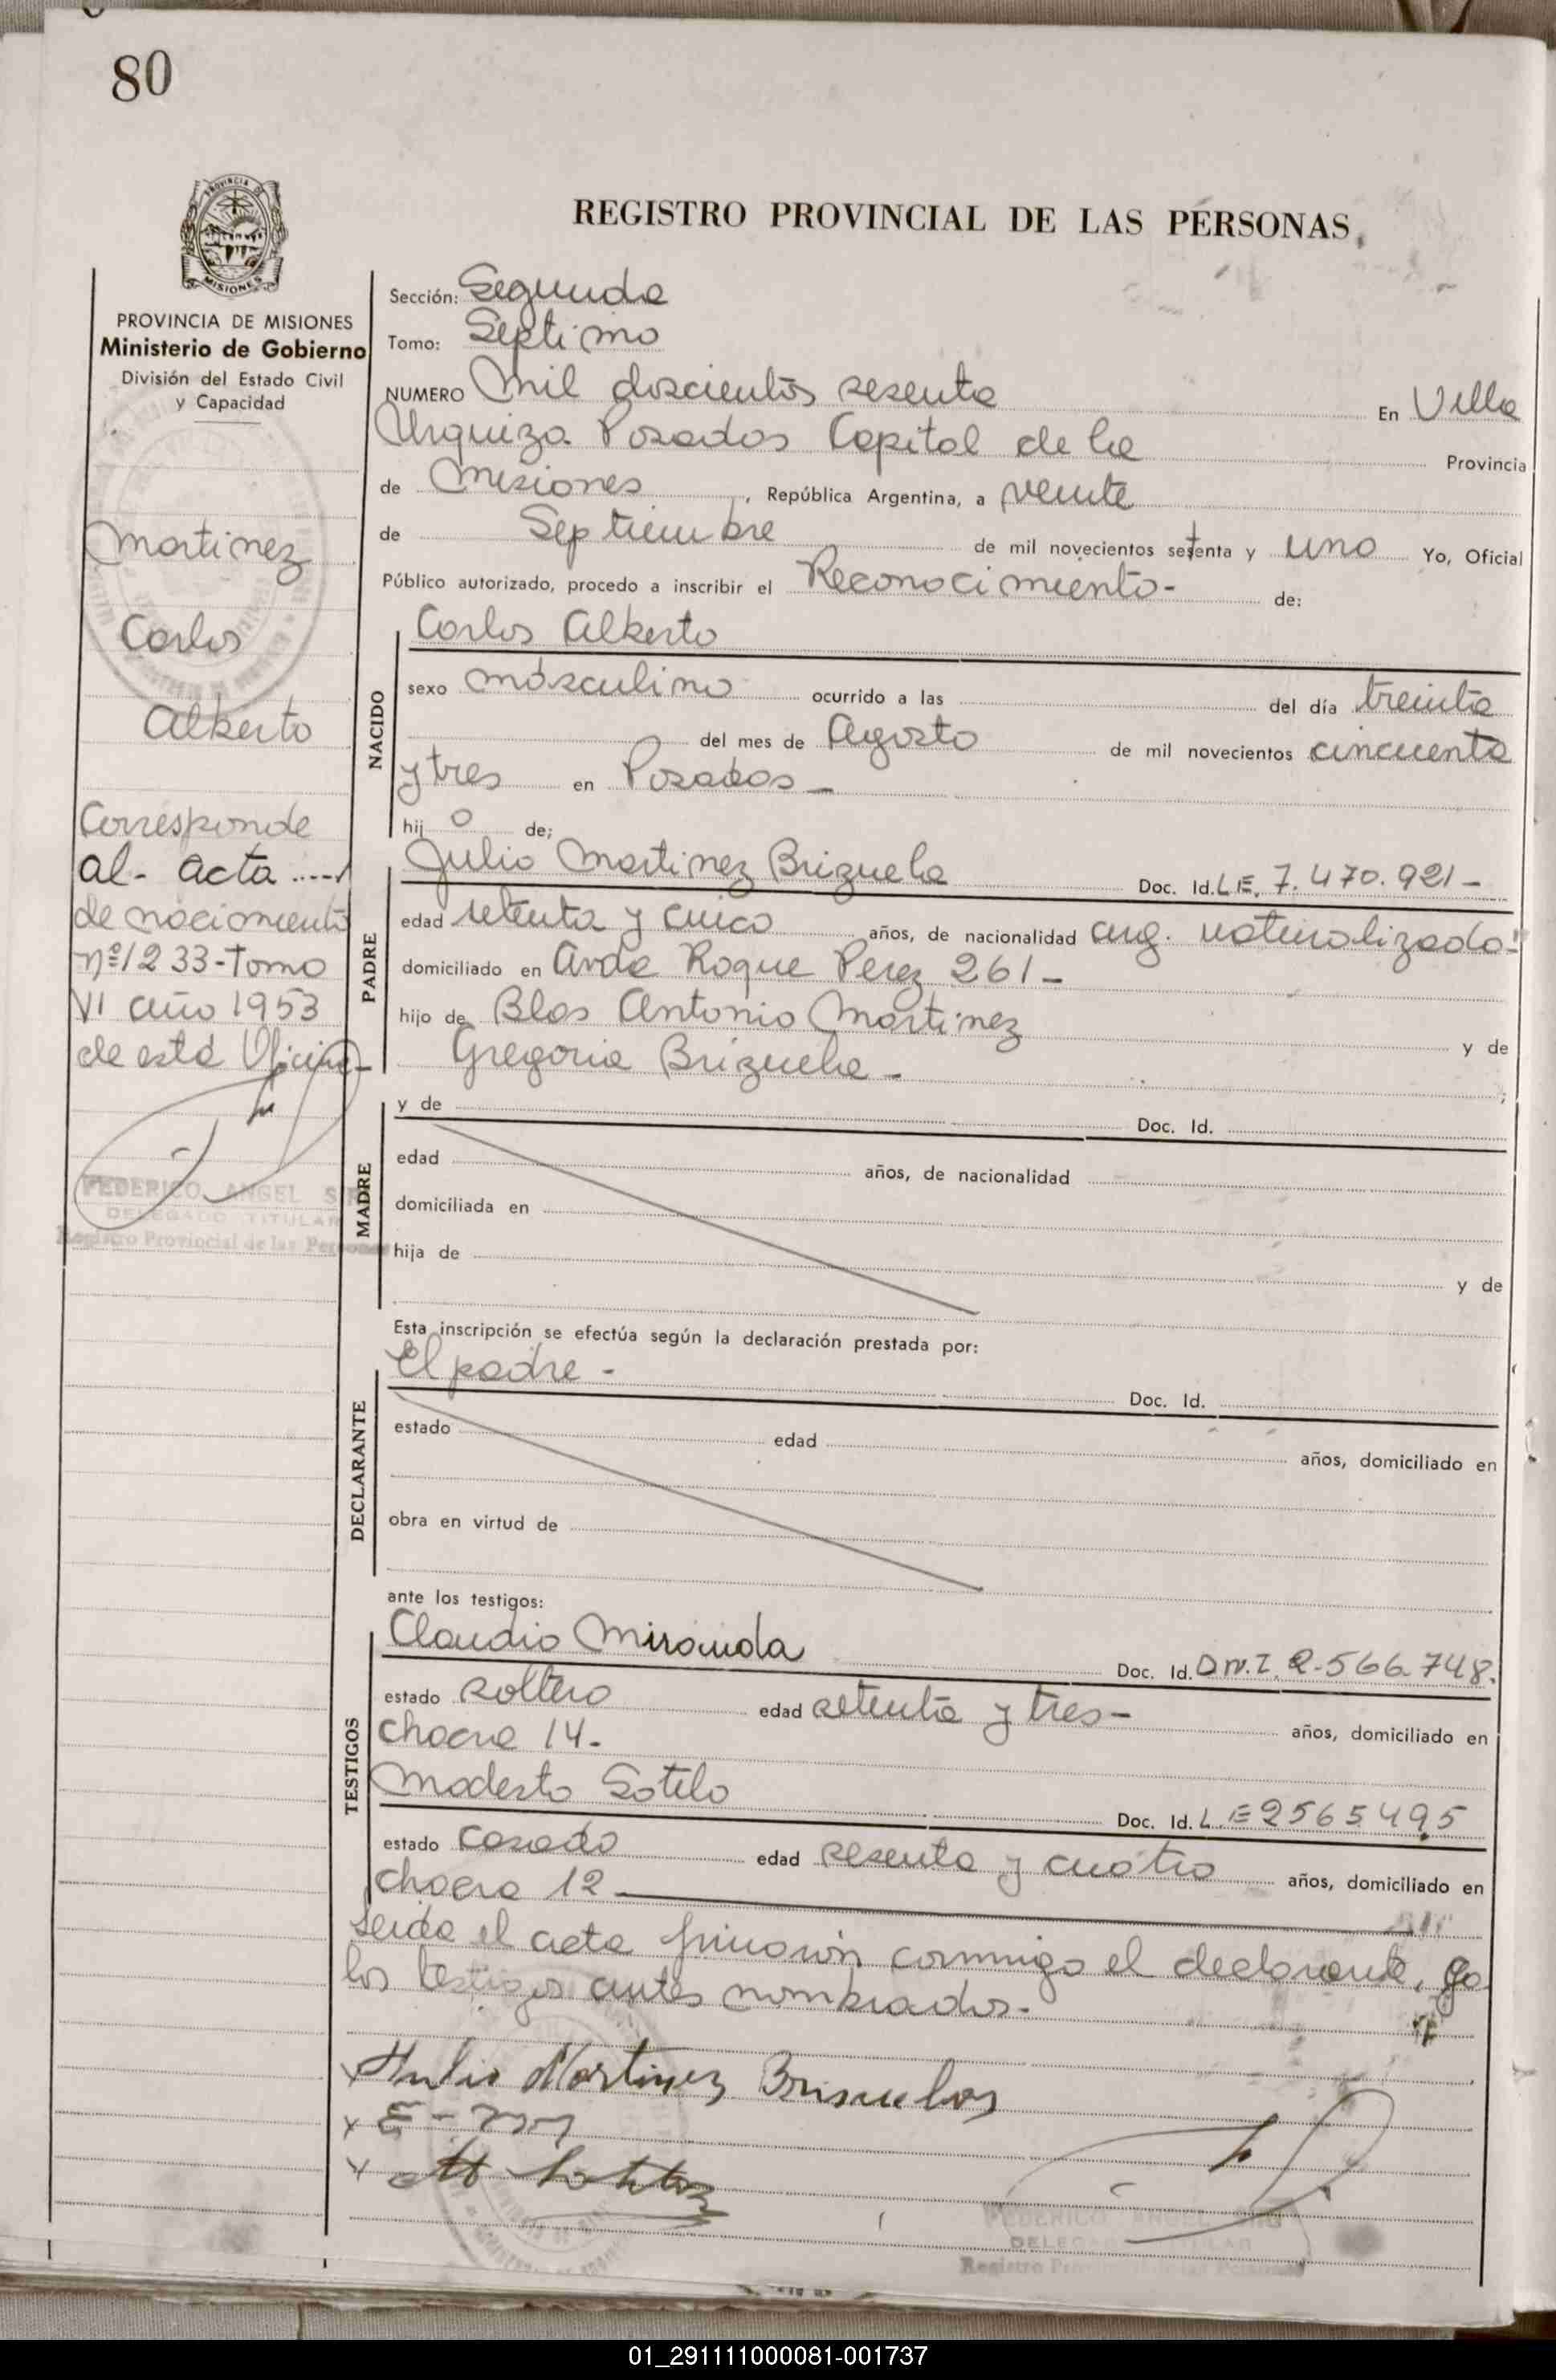 80
PROVINCIA DE
MISIONES
REGISTRO PROVINCIAL DE LAS PERSONAS
PROVINCIA DE MISIONES
Ministerio de Gobierno
División del Estado Civil
y Capacidad
Martinez
Carlos
Alberto
Corresponde
al- acta ....
de nacimiento
nº 1233-Tomo
VI año 1953
de esta Oficina-
FEDERICO ANGEL
DELEGADO TITULAR
Registro Provincial de las Personas
Sección: Segunda
Tomo: Septimo
NUMERO Mil doscientos sesenta En Villa
Urquiza Posadas Capital de la Provincia
de Misiones, República Argentina, a veinte
de Septiembre de mil novecientos setenta y uno Yo, Oficial
Público autorizado, procedo a inscribir el Reconocimiento- de:
NACIDO
Carlos Alberto
sexo masculino ocurrido a las del día treinta
del mes de Agosto de mil novecientos cincuenta
y tres en Posadas-
hijo de;
PADRE
Julio Martinez Brizuela Doc. Id. L.E. 7.470.921-
edad setenta y cinco años, de nacionalidad arg. naturalizado-
domiciliado en Avda Roque Perez 261-
hijo de Blas Antonio Martinez y de
Gregoria Brizuela-
MADRE
y de Doc. Id.
edad años, de nacionalidad
domiciliada en
hija de y de
Esta inscripción se efectúa según la declaración prestada por:
DECLARANTE
El padre- Doc. Id.
estado edad años, domiciliado en
obra en virtud de
ante los testigos:
TESTIGOS
Claudio Miranda Doc. Id. D.N.I. 2.566.748.
estado soltero edad setenta y tres- años, domiciliado en
chacra 14.
Modesto Sotelo Doc. Id. L.E 2565495
estado casado edad sesenta y cuatro años, domiciliado en
chacra 12
Leida el acta firmaron conmigo el declarante, y
los testigos antes nombrados.
x Julio Martinez Brisuelas
x
x
FEDERICO ANGEL
DELEGADO TITULAR
Registro Provincial de las Personas
01_291111000081-001737